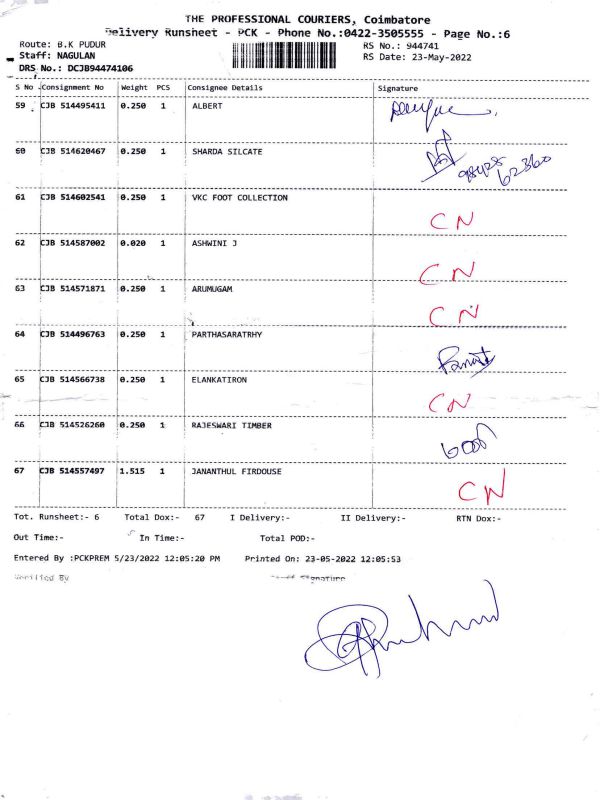 THE PROFESSIONAL COURIERS, Coimbatore
Delivery Runsheet - PCK - Phone No.:0422-3505555 - Page No.:6
Route: B.K PUDUR RS No.: 944741
Staff: NAGULAN RS Date: 23-May-2022
DRS No.: DCJB94474106
S No Consignment No Weight PCS Consignee Details Signature
59 CJB 514495411 0.250 1 ALBERT
60 CJB 514620467 0.250 1 SHARDA SILCATE
61 CJB 514602541 0.250 1 VKC FOOT COLLECTION
CN
62 CJB 514587002 0.020 1 ASHWINI J
CN
63 CJB 514571871 0.250 1 ARUMUGAM
CN
64 CJB 514496763 0.250 1 PARTHASARATRHY
65 CJB 514566738 0.250 1 ELANKATIRON
CN
66 CJB 514526260 0.250 1 RAJESWARI TIMBER
67 CJB 514557497 1.515 1 JANANTHUL FIRDOUSE
CN
Tot. Runsheet:- 6 Total Dox:- 67 I Delivery:- II Delivery:- RTN Dox:-
Out Time:- In Time:- Total POD:-
Entered By :PCKPREM 5/23/2022 12:05:20 PM Printed On: 23-05-2022 12:05:53
Verified By Staff Signature